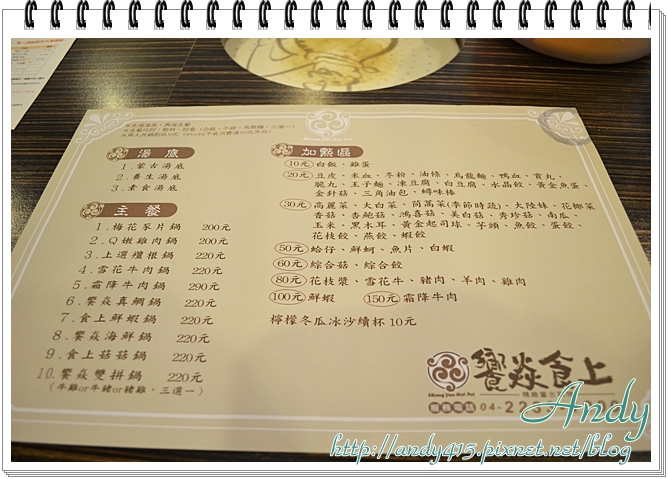 湯底
1. 蒙古湯底
2. 養生湯底
3. 素食湯底
主餐
1. 梅花豕片鍋 200元
2. Q嫩雞肉鍋 200元
3. 上選糧根鍋 220元
4. 雪花牛肉鍋 220元
5. 霜降牛肉鍋 290元
6. 饗焱真鯛鍋 220元
7. 食上鮮蝦鍋 220元
8. 饗焱海鮮鍋 220元
9. 食上菇菇鍋 220元
10. 饗焱雙拼鍋 220元
(牛雞or牛豬or豬雞，三選一)
加點區
10元 白飯、雞蛋
20元 豆皮、米血、冬粉、油條、烏龍麵、鴨血、貢丸、
脆丸、王子麵、凍豆腐、白豆腐、水晶餃、黃金魚蛋、
金針菇、三角油包、蟳味棒
30元 高麗菜、大白菜、茼萵菜(季節時蔬)、大陸妹、花椰菜
香菇、杏鮑菇、鴻喜菇、美白菇、秀珍菇、南瓜、
玉米、黑木耳、黃金起司球、芋頭、魚餃、蛋餃、
花枝餃、燕餃、蝦餃
50元 蛤仔、鮮蚵、魚片、白蝦
60元 綜合菇、綜合餃
80元 花枝漿、雪花牛、豬肉、羊肉、雞肉
100元 鮮蝦 150元 霜降牛肉
檸檬冬瓜冰沙續杯10元
饗焱食上
Shiang Yan Hot Pot
服務電話 04-22
Andy
http://andy415.pixnet.net/blog